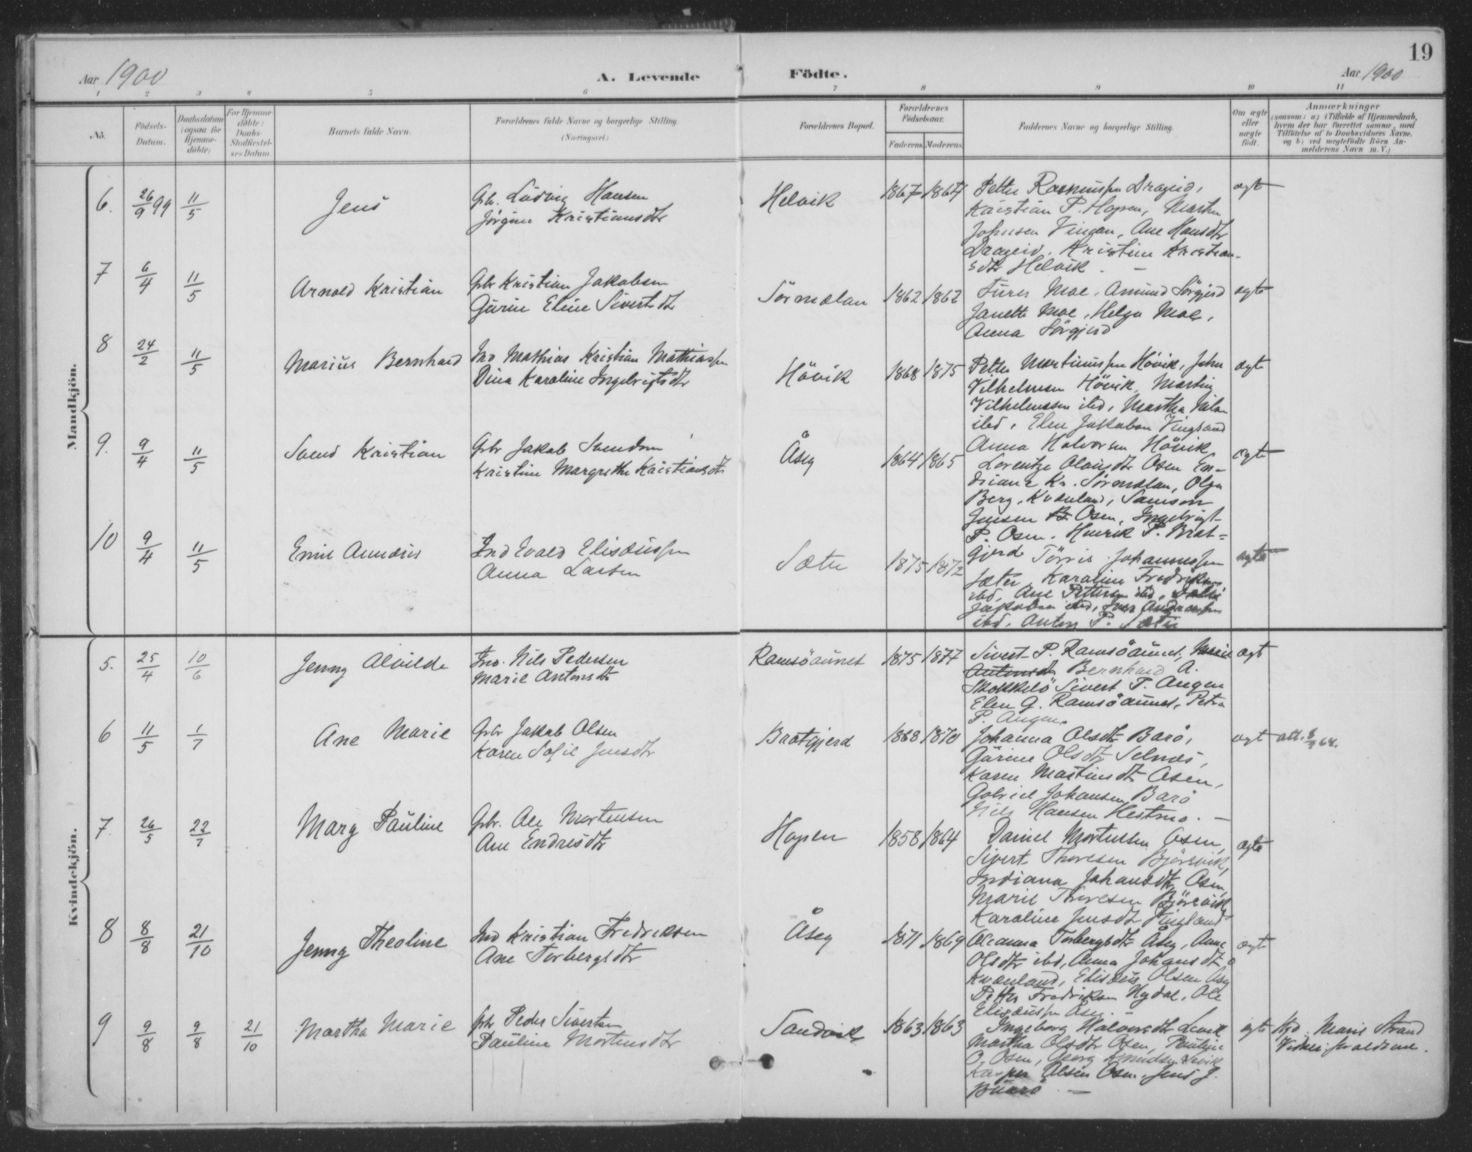 Aar 1900
A. Levende
Födte.
Aar 1900
19
1 2 3 4 5 6 7 8 9 10 11
No.
Födsels-
Datum.
Daabsdatum
(ogsaa for
Hjemme-
döbte)
For Hjemme-
döbte:
Daabs-
Stadfæstel-
ses Datum.
Barnets fulde Navn.
Forældrenes fulde Navne og borgerlige Stilling.
(Næringsvei)
Forældrenes Bopæl.
Forældrenes
Födselsaar.
Faderens.
Moderens.
Faddernes Navne og borgerlige Stilling.
Om ægte
eller
uægte
födt.
Anmærkninger
Mandkjön.
6. 26/9 99 11/5 Jens
Gbr. Ludvig Hansen
Jörgine Kristiansdtr
Helvik 1867 1864
Petter Rasmussen Drageid,
Kristian P. Hopen, Morten
Johnsen Vingan, Ane Hansdtr
Drageid, Kristine Kristian-
sdtr Helvik. —
ægt
7 6/4 11/5 Arnold Kristian
Gbr Kristian Jakobsen
Gurine Eline Sivertsdtr
Sörmælan 1862 1862
Moe, Amund Sörgjerd
Janette Moe, Helga Moe,
Anna Sörgjerd
ægte
8 24/2 11/5 Marius Bernhard
Ind Mathias Kristian Mathiassen
Dina Karoline Ingebrigtsdtr
Hövik 1868 1875
Petter Martinussen Hövik, John
Vilhelmsen Hövik, Martin
Vilhelmsen ibd, Martha
ibd, Elen Jakobsen Vingsand
Anna Halvorsen Hövik
ægt
9. 9/4 11/5 Svend Kristian
Gbr Jakob Svendsen
Kristine Margrethe Kristiansdtr
Åseg 1864 1865
Lorentze Olausdtr Osen En-
driane Kr. Sörmælan, Olga
Berg, Kvænland, Samson
Jensen Osen, Ingebrigt
P. Osen. Henrik P. Brat-
gjerd
ægte
10 9/4 11/5 Emil Amandus
Ind Evald Elisæussen
Anna Larsen
Sæter 1875 1872
Törris Johannessen
Sæter, Karoline Fredriksen
ibd, Ane Pettersen ibd,
Jakobsen ibd,
ibd, Anton P. Sæter
ægte
Kvindekjön.
5. 25/4 10/6 Jenny Alvilde
Ind. Nils Pedersen
Marie Antonsdtr
Ramsöaunet 1875 1877
Sivert P. Ramsöaunet, Marie
Antonsdtr Bernhard A.
Skokkelö Sivert T. Angen
Elen G. Ramsöaunet, Petra
P. Angen.
ægt
6 11/5 1/7 Ane Marie
Gbr Jakob Olsen
Karen Sofie Jensdtr
Bratgjerd 1868 1870
Johanna Olsdtr Barö,
Gurine Olsdtr Selnæs,
Karen Martinsdtr Osen,
Gabriel Johansen Barö
Nils Hansen Hestmo. —
ægt
7. 26/5 22/7 Mary Pauline
Gbr. Ole Mortensen
Ane Endresdtr
Hopen 1858 1864
Daniel Mortensen Osen,
Sivert Thoresen Björevik,
Indiana Johansdtr Osen,
Marie Thoresen Björevik
Karoline Jensdtr
ægte
8 8/8 21/10 Jenny Theoline
Ind Kristian Fredriksen
Ane Torbergsdtr
Åseg 1871 1869
Oleanna Torbergsdtr Åseg, Anne
Olsdtr ibd, Anna Johansdtr
Kvænland, Elisæus Olsen Aseg
Petter Fredriksen Hydal, Ole
Elisæussen Aseg. —
ægt
9 9/8 9/8 21/10 Martha Marie
Gbr Peder Sivertsen
Pauline Mortensdtr
Sandvik 1863 1863
Ingeborg Halvorsdtr
Martha Olsdtr Osen, Pauline
O. Osen, Georg
Kasper Olsen Osen, Jens J.
Buarö —
ægte
Hjd. Marie Strand
Vidner: forældrene.